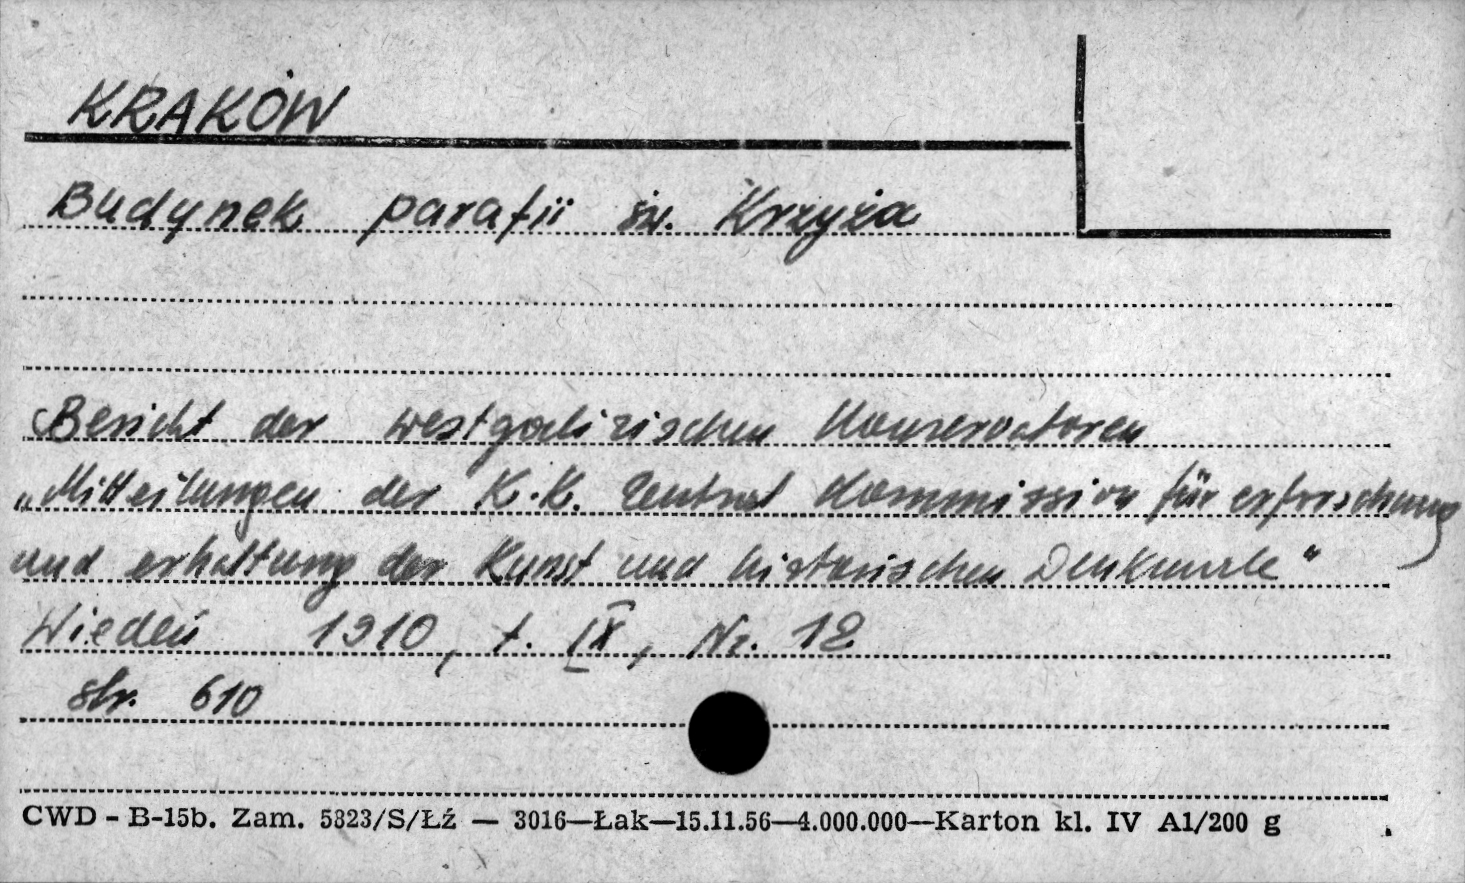 KRAKÓW
Budynek parafii św. Krzyża
Bericht der westgalizischen Konservatoren
„Mitteilungen der K.K. Zentral Kommission für erforschung
und erhaltung der Kunst und historischen Denkmale"
Wiedeń 1910, t. IX, Nr. 12
str. 610
CWD - B-15b. Zam. 5323/S/Łź — 3016—Łak—15.11.56—4.000.000—Karton kl. IV A1/200 g